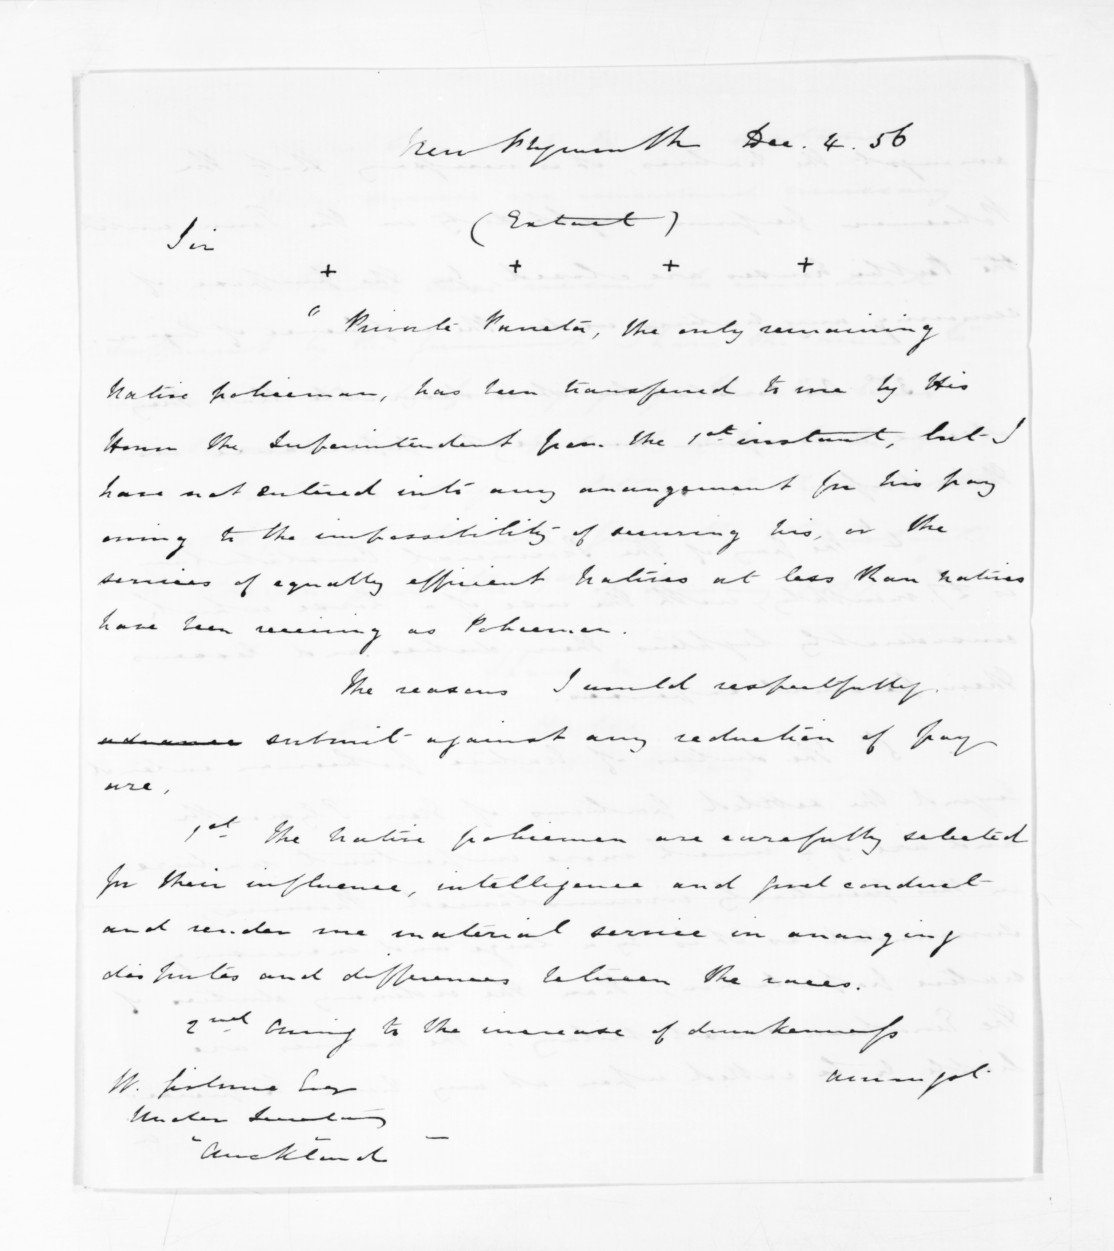 New Plymouth Dec. 4. 56
(Extract)
Sir
+ + + +
" Private Paneta, the only remaining
Native policeman, has been transferred to me by His
Honor the Superintendent from the 1st instant, but I
have not entered into any arrangement for his pay
owing to the impossibility of securing his, or the
services of equally efficient Natives at less than natives
have been receiving as Policemen.
The reasons I would respectfully
advance submit against any reduction of pay
are,
1st The Native policemen are carefully selected
for their influence, intelligence and good conduct
and render me material service in arranging
disputes and differences between the races.
2nd Owing to the increase of drunkenness
amongst
W. Gisborne Esq
Under Secretary
"Auckland" —